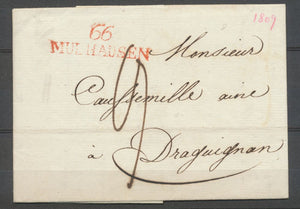 1809
66
MULHAUSEN
Monsieur
Caussemille ainé
à Draguignan
9